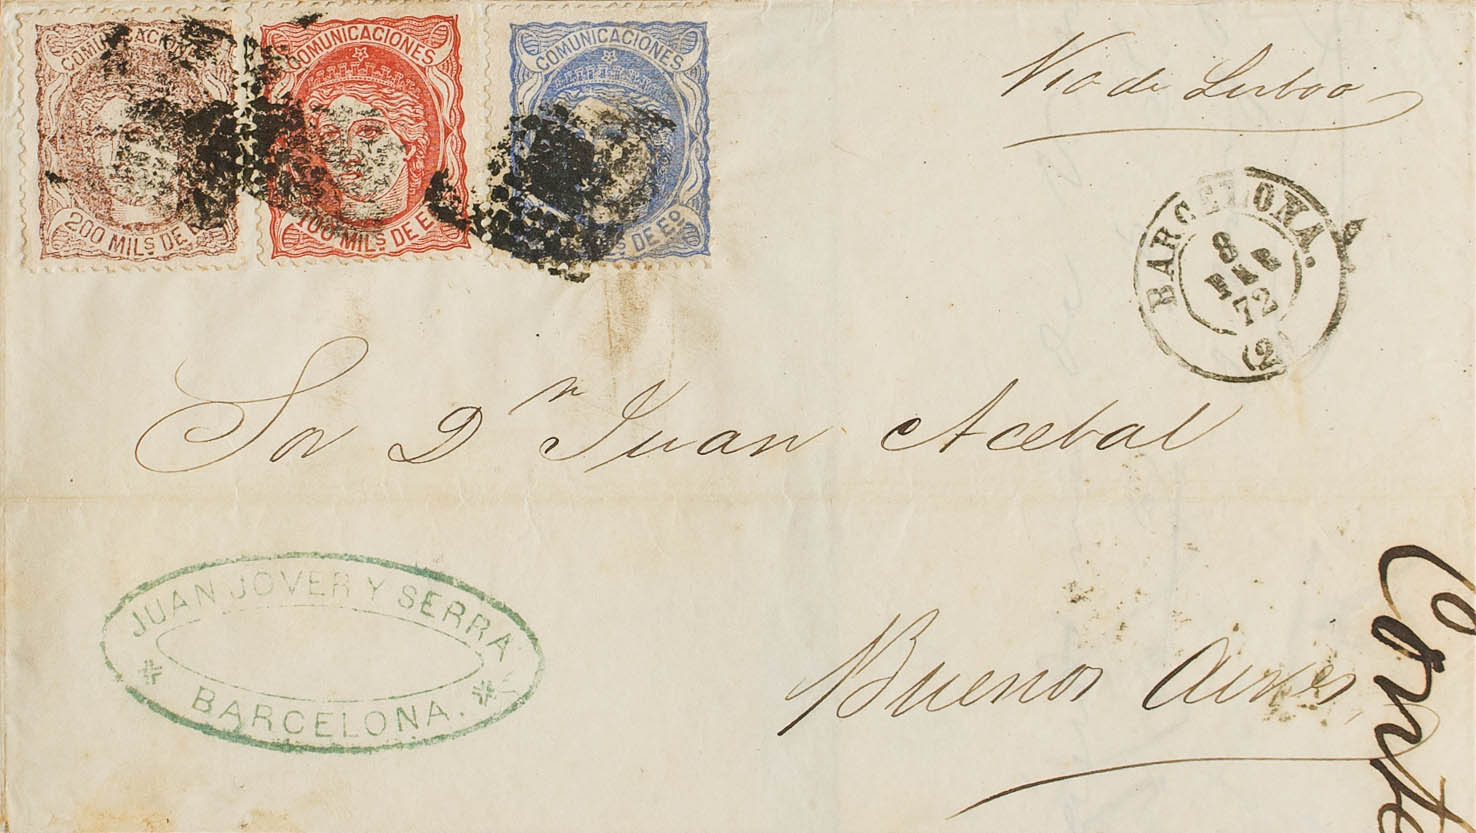 COMUNICACIONES
200 MILS DE
COMUNICACIONES
100 MILS DE E
COMUNICACIONES
S DE Eº
Via de Lisboa
BARCELONA.
8
MAR
72
(2)
Sor Dn Juan Acebal
JUAN JOVER Y SERRA
BARCELONA.
Buenos Aires,
Conte